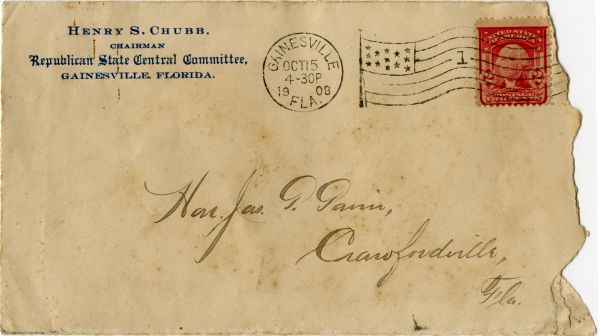 HENRY S. CHUBB,
CHAIRMAN
Republican State Central Committee,
GAINESVILLE, FLORIDA.
GAINESVILLE
OCT 15
4-30P
1908
FLA.
1
UNITED STATES
OF AMERICA
Hon. Jas. P.
Crawfordville,
Fla.